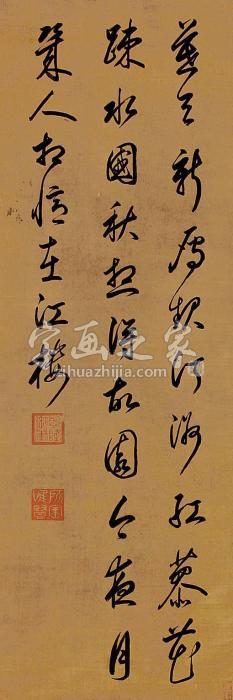 暮天新雁起汀洲紅蓼花
疎水國秋想得故園今夜月
幾人相憶在江樓
字画之家
zihuazhijia.com